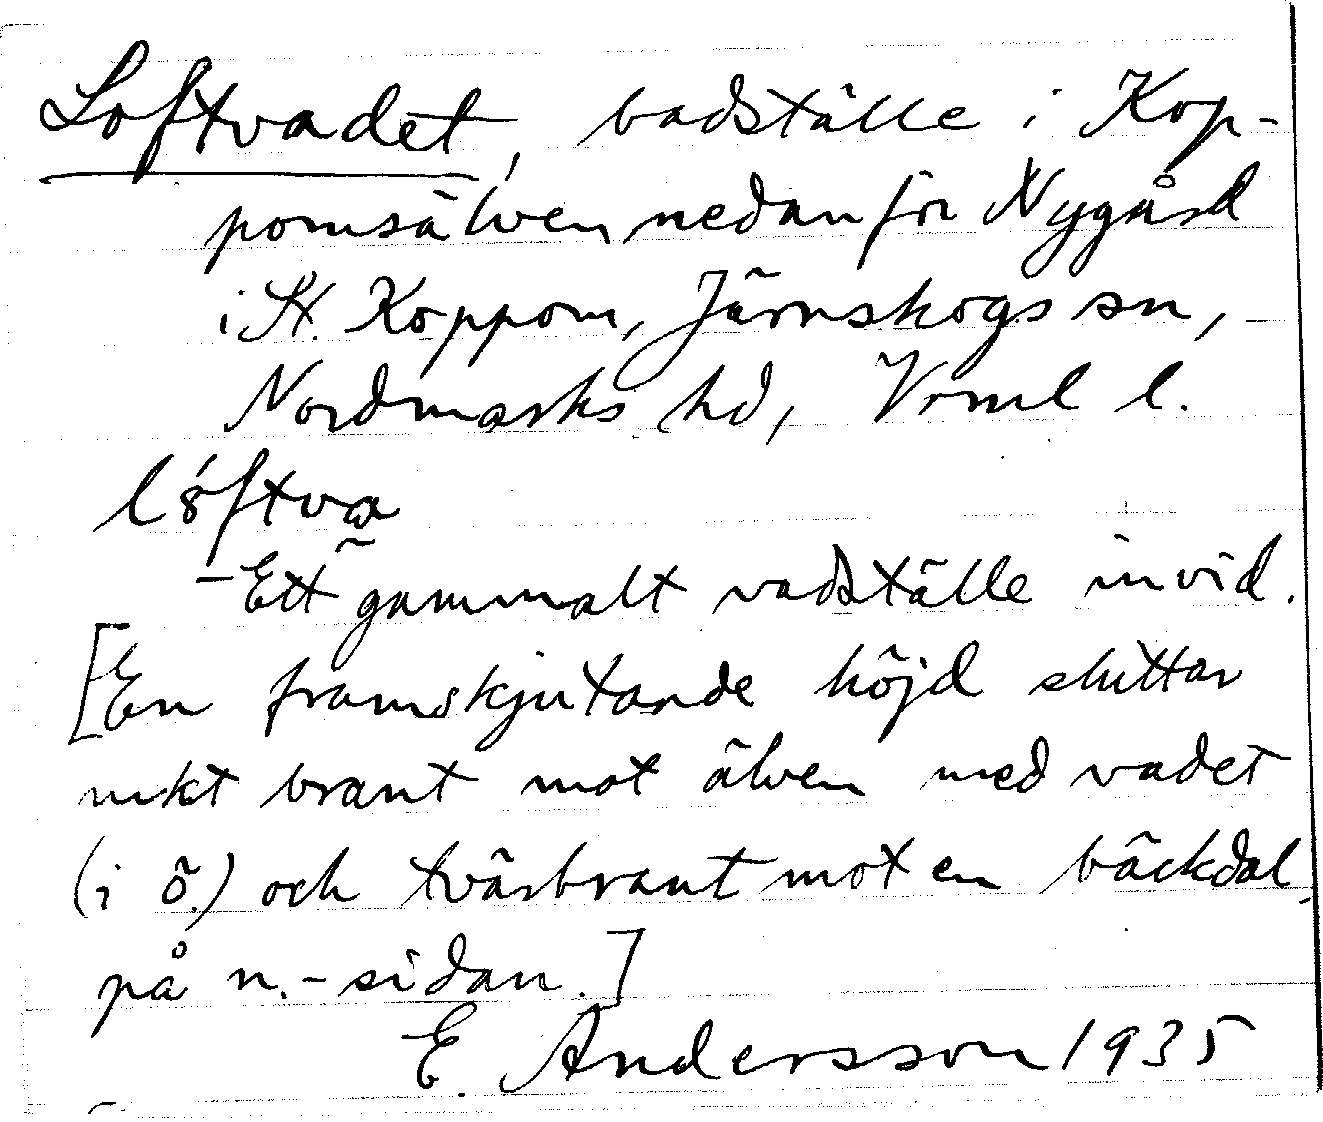 Loftvadet, badställe i Kop-
pomsälven nedanför Nygård
i St. Koppom, Järnskogs sn,
Nordmarks hd, Vrml l.
Ett gammalt vadställe invid.
[En framskjutande höjd sluttar
mkt brant mot älven med vadet
(i ö.) och tvärbrant mot en bäckdal
på n.-sidan.]
E. Andersson 1935